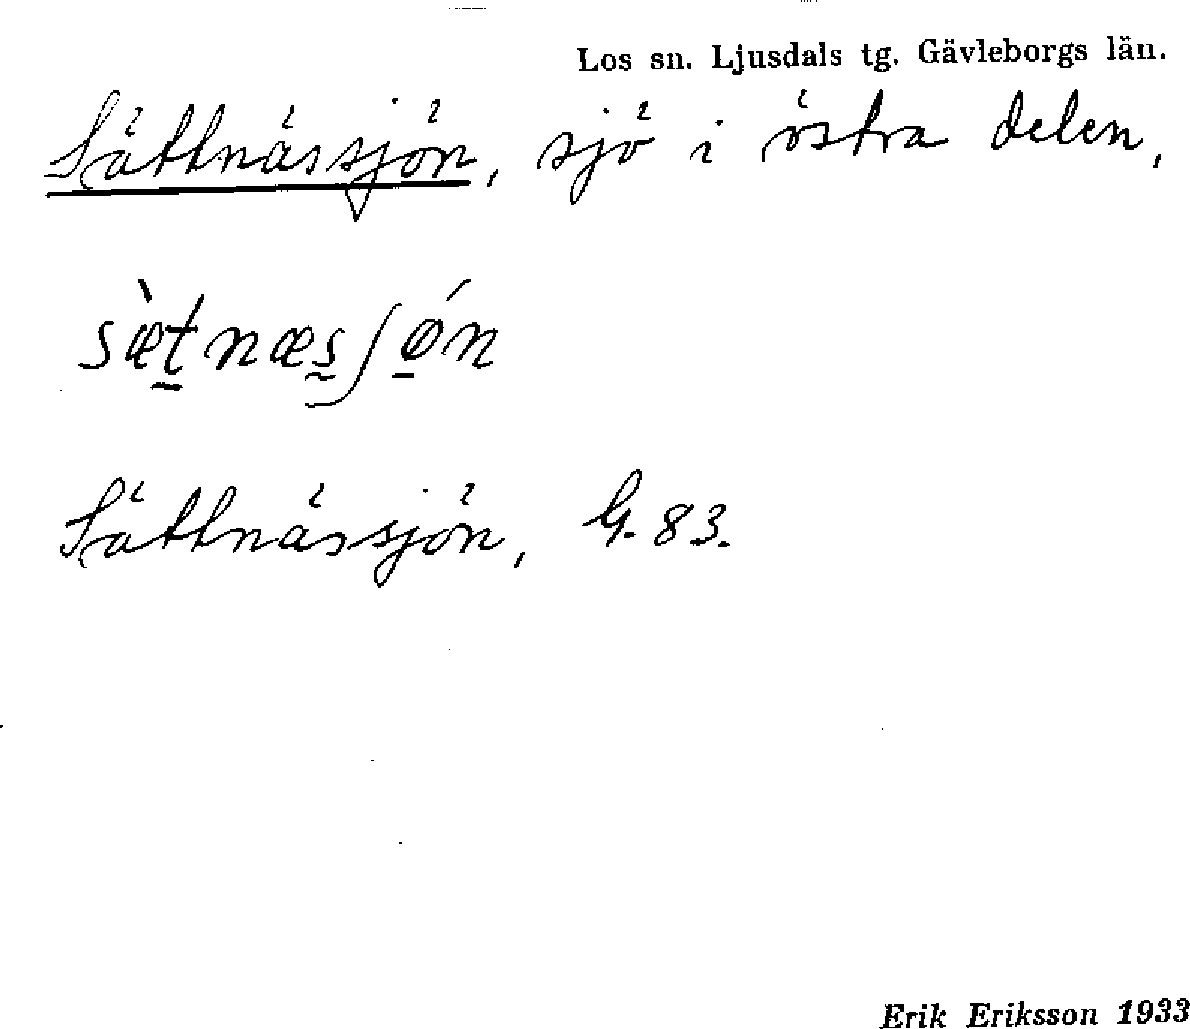 Los sn. Ljusdals tg. Gävleborgs län.
Sättnässjön, sjö i östra delen,
sæ̀tnæsʃǿn
Sättnässjön, G. 83.
Erik Eriksson 1933